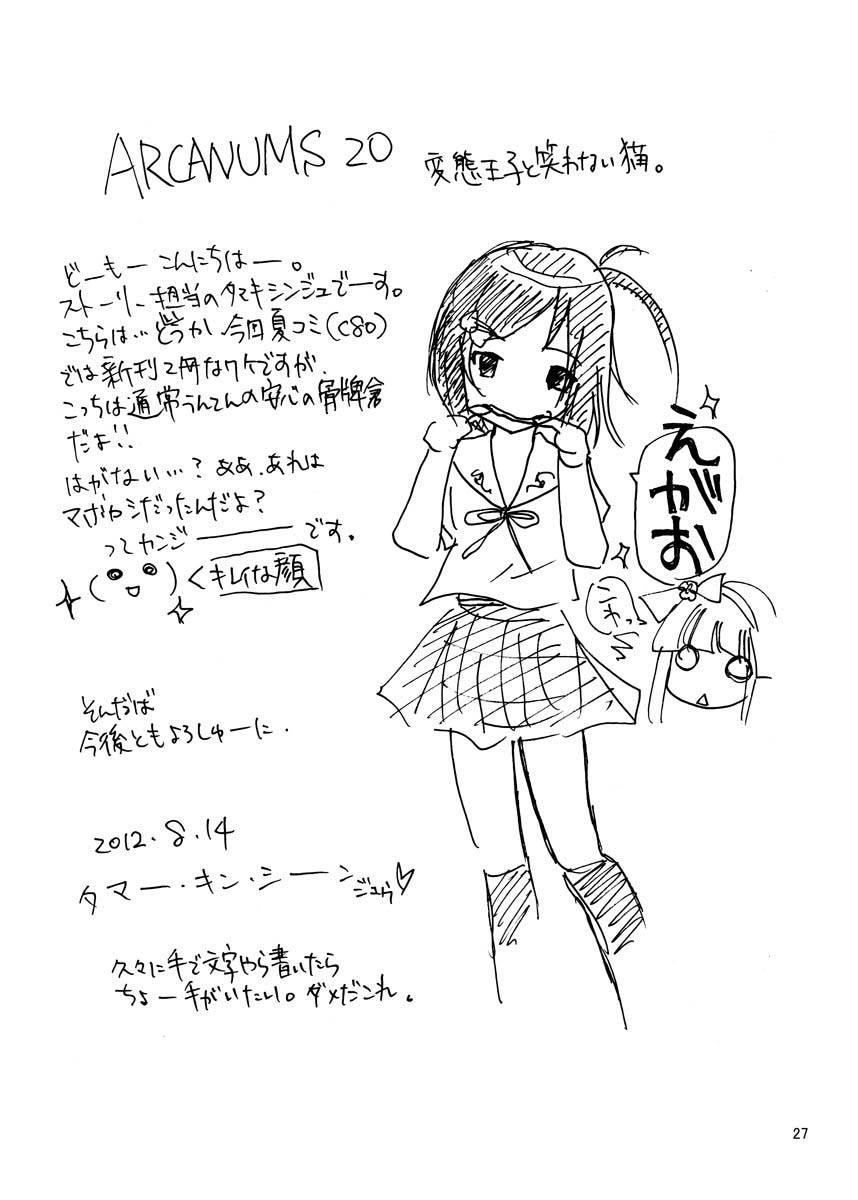 ARCANUMS 20
変態王子と笑わない猫。
どーもー こんにちはー。
ストーリー担当のタマキシンジュでーす。
こちらは…どうか 今回夏コミ(C80)
では新刊2冊なワケですが、
こっちは通常うんてんの安心の骨牌倉
だよ!!
はがない…? ああ、あれは
マボロシだったんだよ?
ってカンジーーーです。
キレイな顔
えがお
こわっ
そんだば
今後ともよろしゅーに.
2012.8.14
タマー・キン・シーン
ジュゥ♡
久々に手で文字やら書いたら
ちょー手がいたい。ダメだこれ。
27